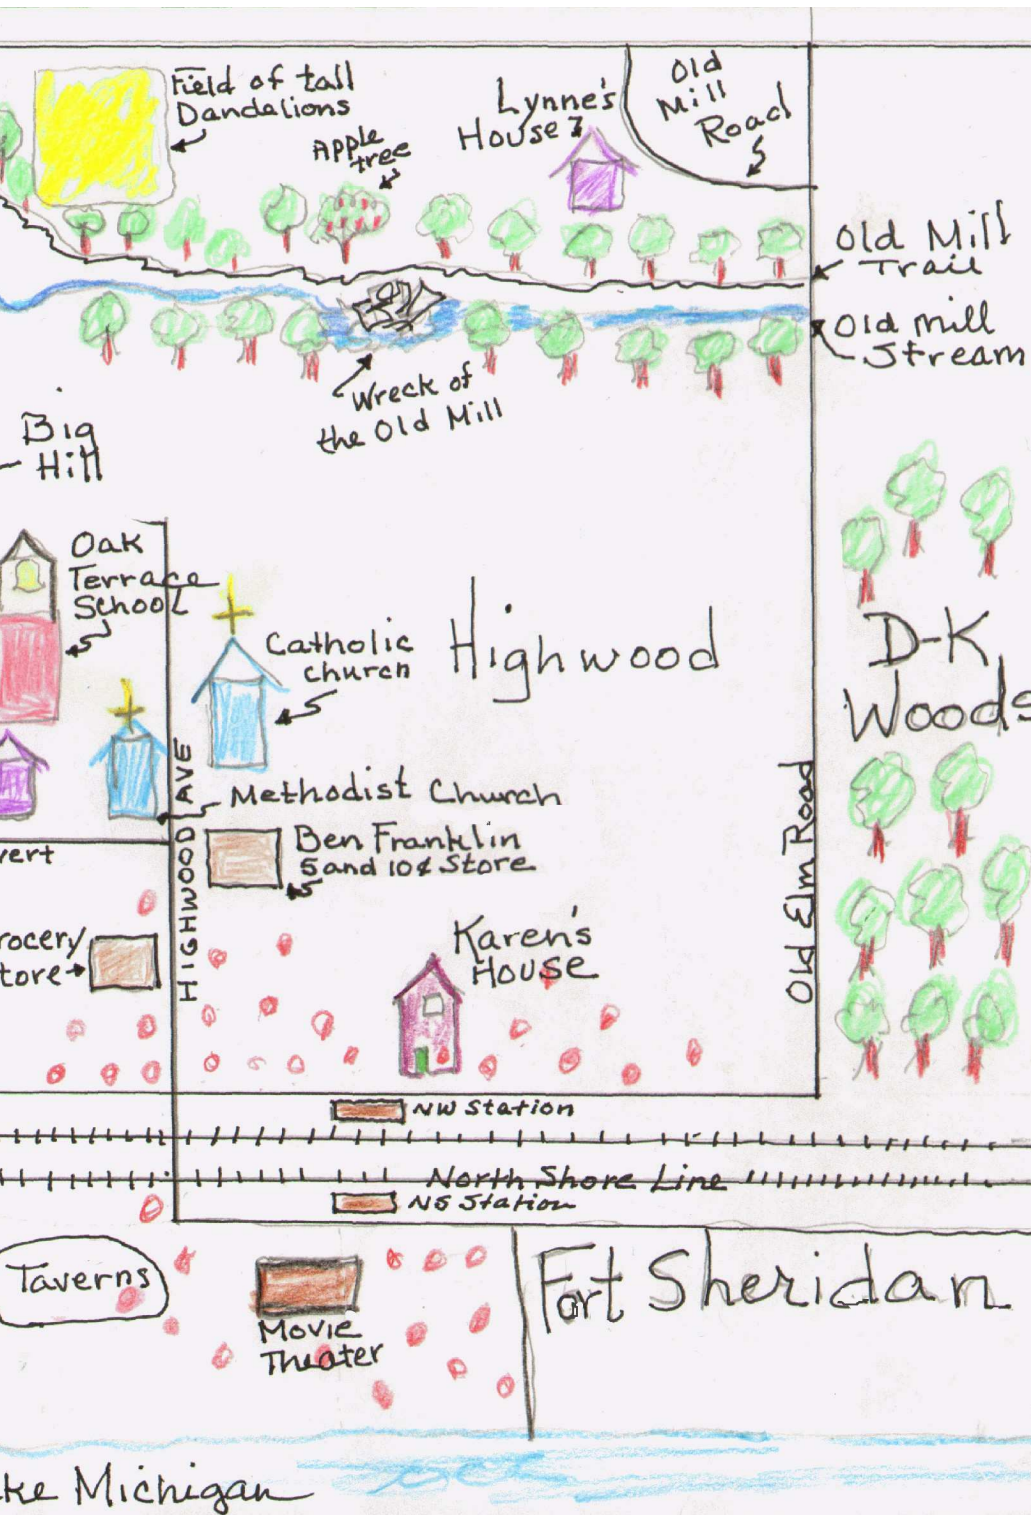 Field of tall
Dandalions
Apple
tree
Lynne's
House
Old
Mill
Road
Old Mill
Trail
Old Mill
Stream
Wreck of
the Old Mill
Big
Hill
Oak
Terrace
School
Catholic
church
Highwood
D-K
Woods
HIGHWOOD AVE
Methodist Church
Ben Franklin
5 and 10¢ Store
vert
rocery
tore
Karen's
House
Old Elm Road
NW Station
North Shore Line
NS Station
Taverns
Movie
Theater
Fort Sheridan
ke Michigan